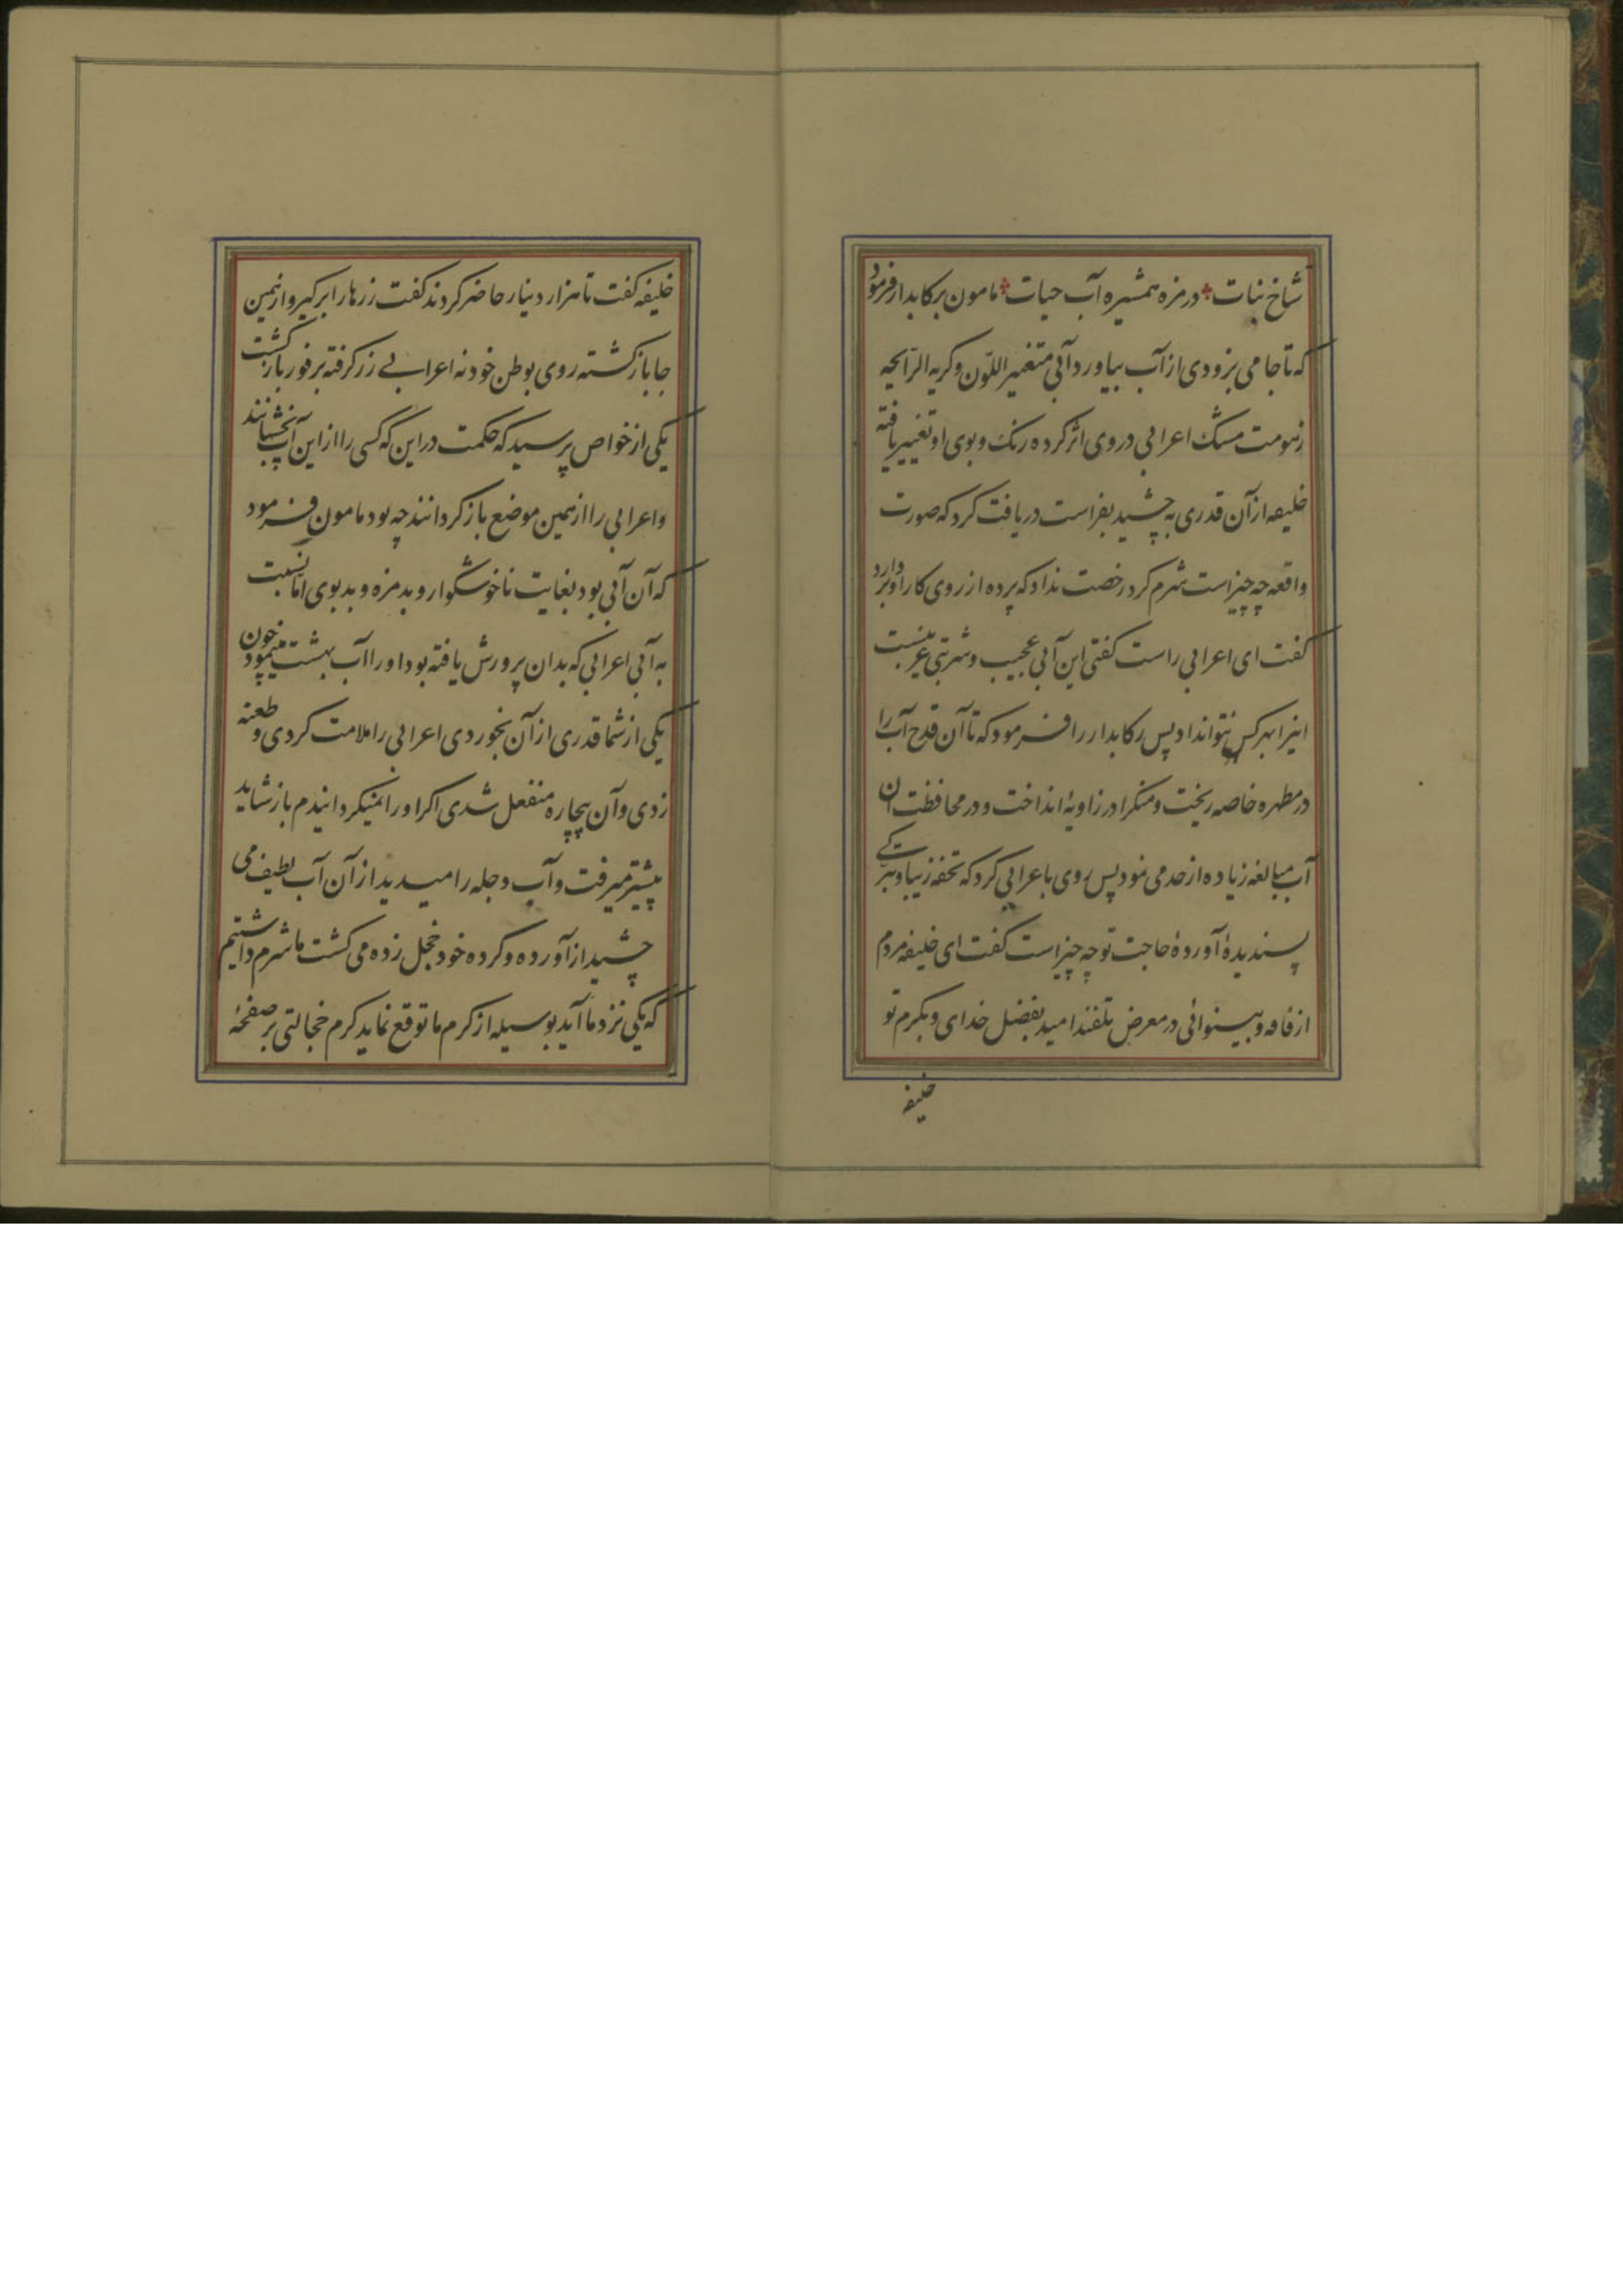 شاخ نبات درمزه همشیره آب حیات مامون برکابدار فرمود
که تا جامی بزودی از آب بیاورد آبی متغیر اللّون وکریه الرّایحه
زهومت مشک اعرابی در وی اثر کرده رنک و بوی او تغییر یافته
خلیفه از آن قدری بچشید بفراست دریافت کرد که صورت
واقعه چه چیز است شرم کرد رخصت نداد که پرده از روی کار او بردارد
کفت ای اعرابی راست کفتی این آبی عجیب و شربتی غریبست
اینرا بهرکس نتواند داد پس رکابدار را فرمود که تا آن قدح آب را
در مطهره خاصه ریخت و مشکرا در زاویهٔ انداخت و در محافظت آن
آب مبالغه زیاده از حد می نمود پس روی باعرابی کرد که تحفه زیبا و تبرکے
پسندیدهٔ آوردهٔ حاجت تو چه چیز است کفت ای خلیفه مردم
از فاقه و بینوائی در معرض تلفند امید بفضل خدای و بکرم تو
خلیفه
خلیفه کفت تا هزار دینار حاضر کردند کفت زرها را برکیر و از همین
جا باز کشته روی بوطن خود نه اعرابے زر کرفته بر فور بازکشت
یکی از خواص پرسید که حکمت در این که کسی را از این آب نچشانند
و اعرابی را از همین موضع باز کردانند چه بود مامون فرمود
که آن آبی بود بغایت ناخوشکوار و بدمزه و بدبوی امّا نسبت
به آبی اعرابی که بدان پرورش یافته بود او را آب بهشت مینمود چون
یکی از شما قدری از آن بخوردی اعرابی را ملامت کردی و طعنه
زدی و آن بیچاره منفعل شدی اکر او را نمیکردانیدم باز شاید
پیشتر میرفت و آب دجله را میدید از آن آب لطیف می
چشید از آورده و کرده خود خجل زده می کشت ما شرم داشتیم
که یکی نزد ما آید بوسیله از کرم ما توقع نماید کرم خجالتی بر صفحهٔ